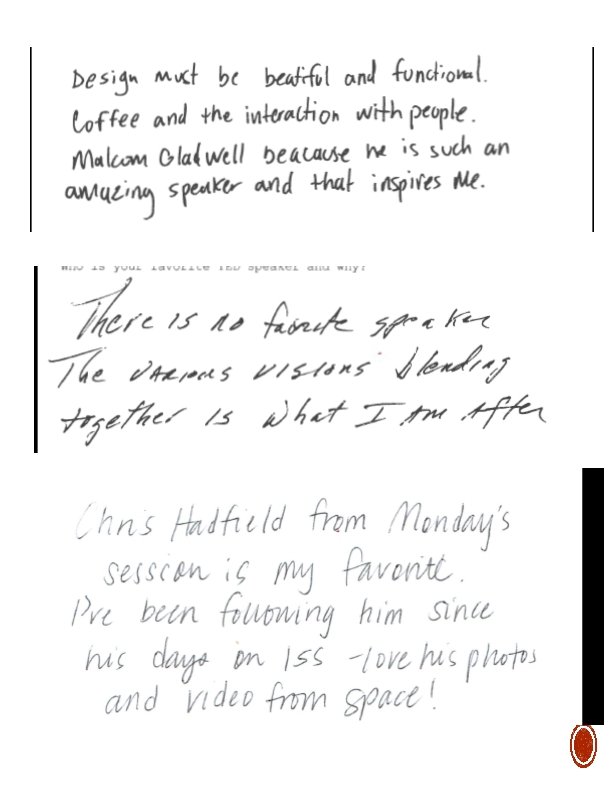 Design must be beatiful and functional.
Coffee and the interaction with people.
Malcom Gladwell beacause he is such an
amazing speaker and that inspires me.
Who is your favorite TED speaker and why?
There is no favorite speaker
The various visions blending
together is what I am after
Chris Hadfield from Monday's
session is my favorite.
I've been following him since
his days on ISS - love his photos
and video from space!